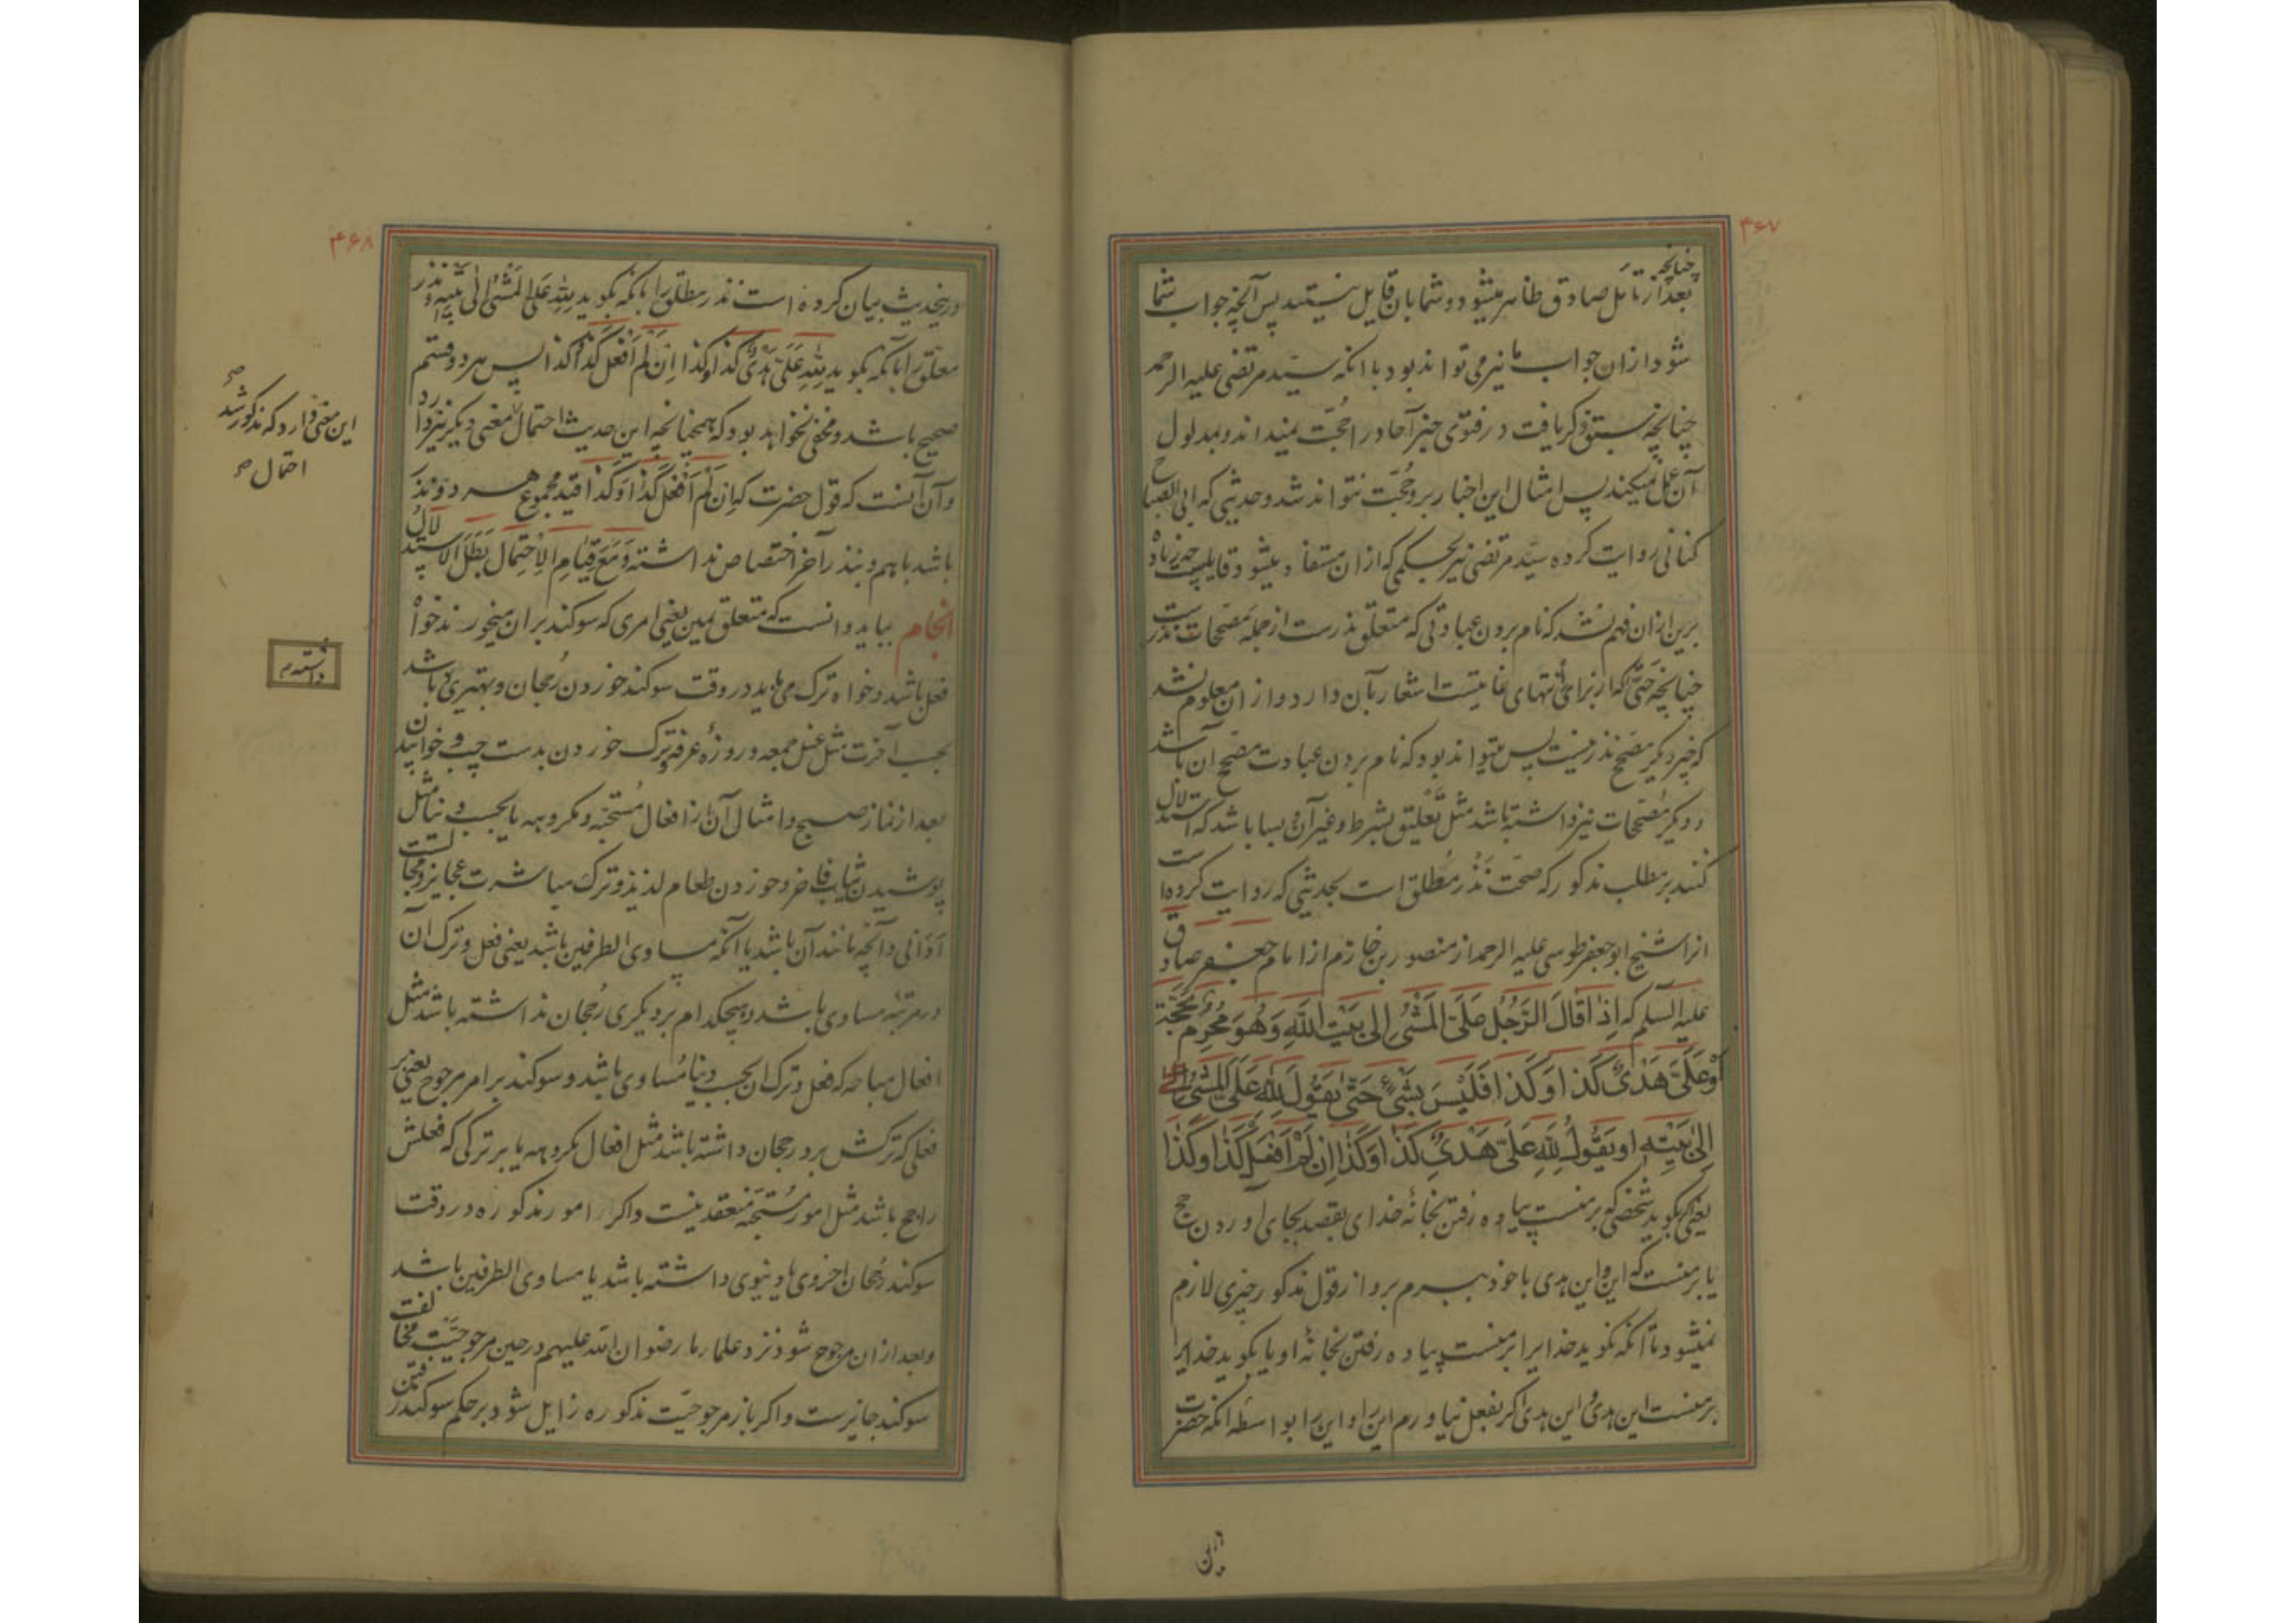 ۴۶۷
چنانچه
بعد از تأمل صادق ظاهر میشود و شما بان قایل نیستید پس آنچه جواب شما
شود از ان جواب ما نیز می تواند بود با انکه سید مرتضی علیه الرحمه
چنانچه سبق ذکر یافت در فتوی خبر آحاد را حجت نمیداند و بمدلول
آن عمل نمیکند پس امثال این اخبار برو حجت نتواند شد و حدیثی که ابی الصباح
کنانی روایت کرده سید مرتضی نیز بحکمی که از ان مستفاد میشود قایلست چه زیاده
برین از ان فهم نشد که نام بردن عبادتی که متعلق نذرست از جمله مصححات نذرست
چنانچه حتی که از برای انتهای غایتست اشعار بآن دارد و از ان معلوم نشد
که چیز دیگر مصحح نذر نیست پس میتواند بود که نام بردن عبادت مصحح آن باشد
و دیگر مصححات نیز داشته باشد مثل تعلیق بشرط و غیر آن و بسا باشد که استدلال
کنند بر مطلب مذکور که صحت نذر مطلق است بحدیثی که روایت کرده است
انرا شیخ ابو جعفر طوسی علیه الرحمه از منصور بن خازم از امام جعفر صادق
علیه السلم که اِذٰا قٰالَ الرَّجُلُ عَلَیَّ الْمَشْیُ اِلیٰ بَیْتِ اللّٰهِ وَ هُوَ مُحْرِمٌ بِحَجَّةٍ
اَوْ عَلَیَّ هَدْیٌ کَذٰا وَ کَذٰا فَلَیْسَ بِشَیْءٍ حَتّٰی یَقُولَ لِلّٰهِ عَلَیَّ الْمَشْیُ
اِلیٰ بَیْتِهِ اَو یَقُولُ لِلّٰهِ عَلَیَّ هَدْیٌ کَذٰا وَ کَذٰا اِنْ لَمْ اَفْعَلْ کَذٰا وَ کَذٰا
یعنی اگر بگوید شخصی که بر منست پیاده رفتن بخانهٔ خدای بقصد بجای آوردن حج
یا بر منست که این و این هدی با خود ببرم برو از قول مذکور چیزی لازم
نمیشود تا آنکه بگوید خدایرا بر منست پیاده رفتن بخانهٔ او یا بگوید خدایرا
بر منست این هدی و این هدی اگر بفعل نیاورم این را و این را بواسطه انکه حضرت
درین
۴۶۸
درینحدیث بیان کرده است نذر مطلق را بانکه بگوید لِلّٰهِ عَلَیَّ الْمَشْیُ اِلیٰ بَیْتِهِ و نذر
معلق را بانکه بگوید لِلّٰهِ عَلَیَّ هَدْیٌ کَذٰا وَ کَذٰا اِنْ لَمْ اَفْعَلْ کَذٰا وَ کَذٰا پس هر دو قسم
صحیح باشد و مخفی نخواهد بود که همچنانچه این حدیث احتمال معنی دیگر نیز دارد
و آن آنست که قول حضرت که اِنْ لَمْ اَفْعَلْ کَذٰا وَ کَذٰا قید مجموع هر دو نذر
باشد باهم و بنذر آخر اختصاص نداشته وَ مَعَ قِیٰامِ الْاِحْتِمٰالِ بَطَلَ الْاِسْتِدْلٰالُ
انجام بباید دانست که متعلق یمین یعنی امری که سوکند بران میخورند خواه
فعل باشد و خواه ترک می باید در وقت سوکند خوردن رُجحان و بهتری باشد
بحسب آخرت مثل غسل جمعه و روزهٔ عرفه و ترک خوردن بدست چپ و خوابیدن
بعد از نماز صبح و امثال آن از افعال مُستحبّه و مکروهه یا بحسب دنیا مثل
پوشیدن ثیاب فاخر و خوردن طعام لذیذ و ترک مباشرت عجایز و مجالست
اَدٰانی و آنچه مانند آن باشد یا آنکه مساوی الطرفین باشد یعنی فعل و ترک آن
در مرتبهٔ مساوی باشد و هیچکدام بر دیگری رُجحان نداشته باشد مثل
افعال مباحه که فعل و ترک ان بحسب دنیا مُساوی باشد و سوکند بر امر مرجوح یعنی بر
فعلی که ترکش برو رجحان داشته باشد مثل افعال مکروهه یا بر ترکی که فعلش
راجح باشد مثل امور مُستحبّه منعقد نیست و اگر امور مذکوره در وقت
سوکند رجحان اخروی یا دنیوی داشته باشد یا مساوی الطرفین باشد
و بعد از ان مرجوح شود نزد علماء ما رضوان الله علیهم در حین مرجوحیّت مخالفت
سوکند جایزست و اگر باز مرجوحیّت مذکوره زایل شود بر حکم سوکند رفتن
این معنی دارد که مذکور شد صح
احتمال صح
داشته